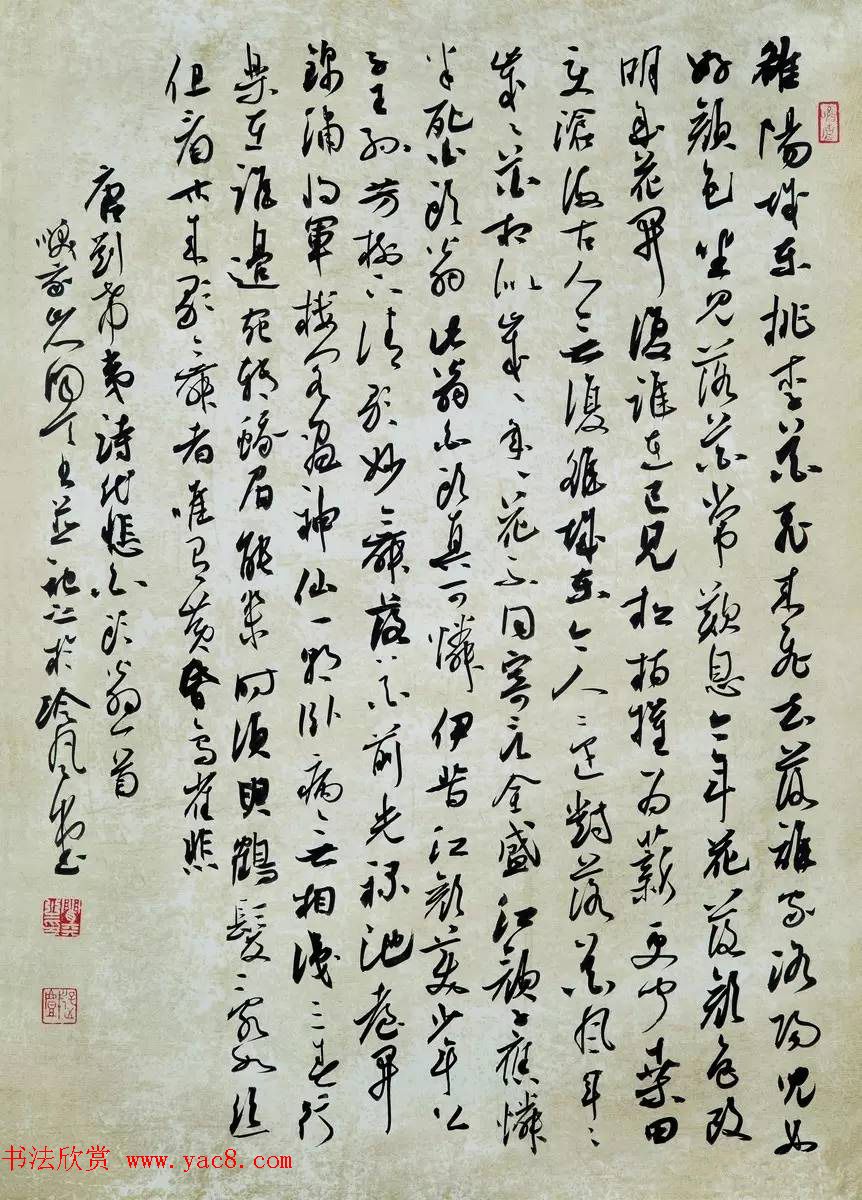 雒陽城東桃李花飛來飛去落誰家洛陽兒女
好顏色坐見落花常歎息今年花落顏色改
明年花開復誰在已見松柏摧為薪更聞桑田
變滄海古人無復雒城東今人還對落花風年〻
歲〻花相似歲〻年〻花不同寄言全盛紅顏子應憐
半死白頭翁此翁白頭真可憐伊昔紅顏美少年公
子王孫芳樹下清歌妙舞落花前光祿池臺開
錦繡將軍樓閣畫神仙一朝臥病無相識三春行
樂在誰邊宛轉蛾眉能幾時須臾鶴髮亂如絲
但看古來歌舞者唯有黃昏鳥雀悲
唐劉希夷詩代悲白頭翁一首
書並記之於冷風
书法欣赏 www.yac8.com